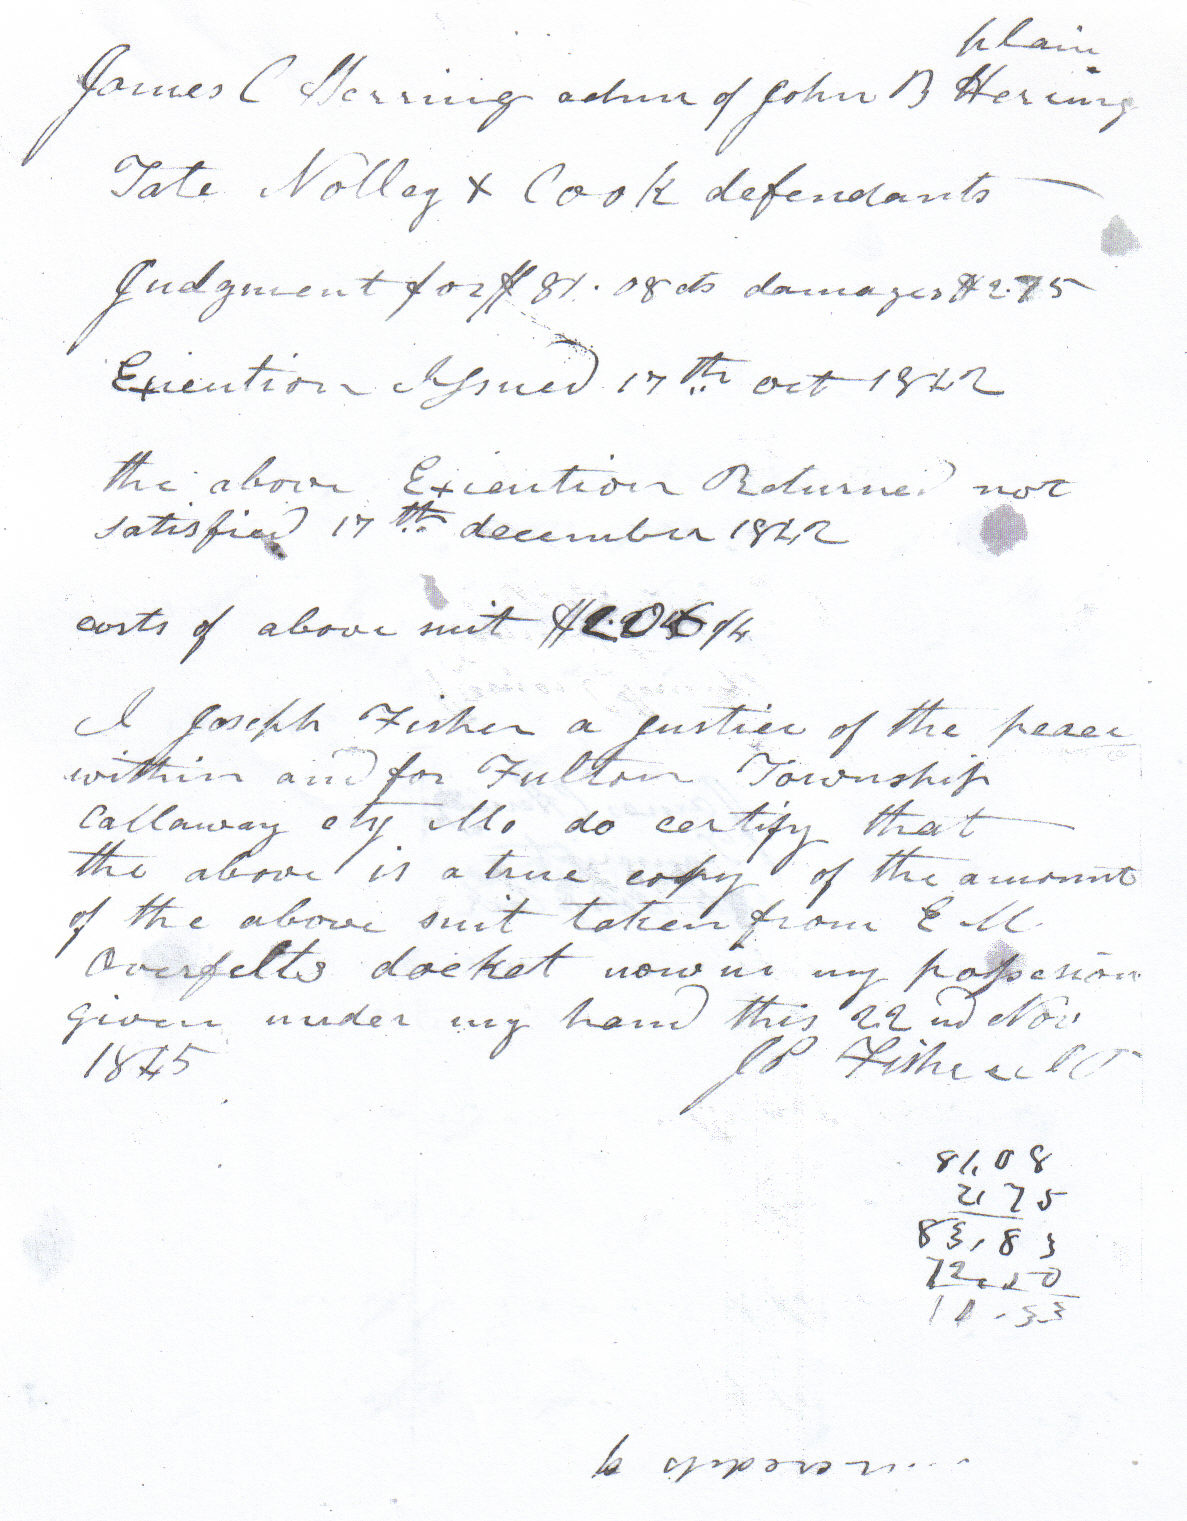 plain
James C Herring admr of John B Herring
Tate Nolley & Cook defendants
Judgment for $81.08 cts damages $2.75
Exicution Issued 17th oct 1842
the above Exicution Returned not
satisfied 17th december 1842
costs of above suit
I Joseph Fisher a justice of the peace
within and for Fulton Township
Callaway cty Mo do certify that
the above is a true copy of the amount
of the above suit taken from E M
Overfelts docket now in my possesion
given under my hand this 22nd Nov
1845 JP Fisher
81,08
2,75
83,83
72.50
11.33
credits